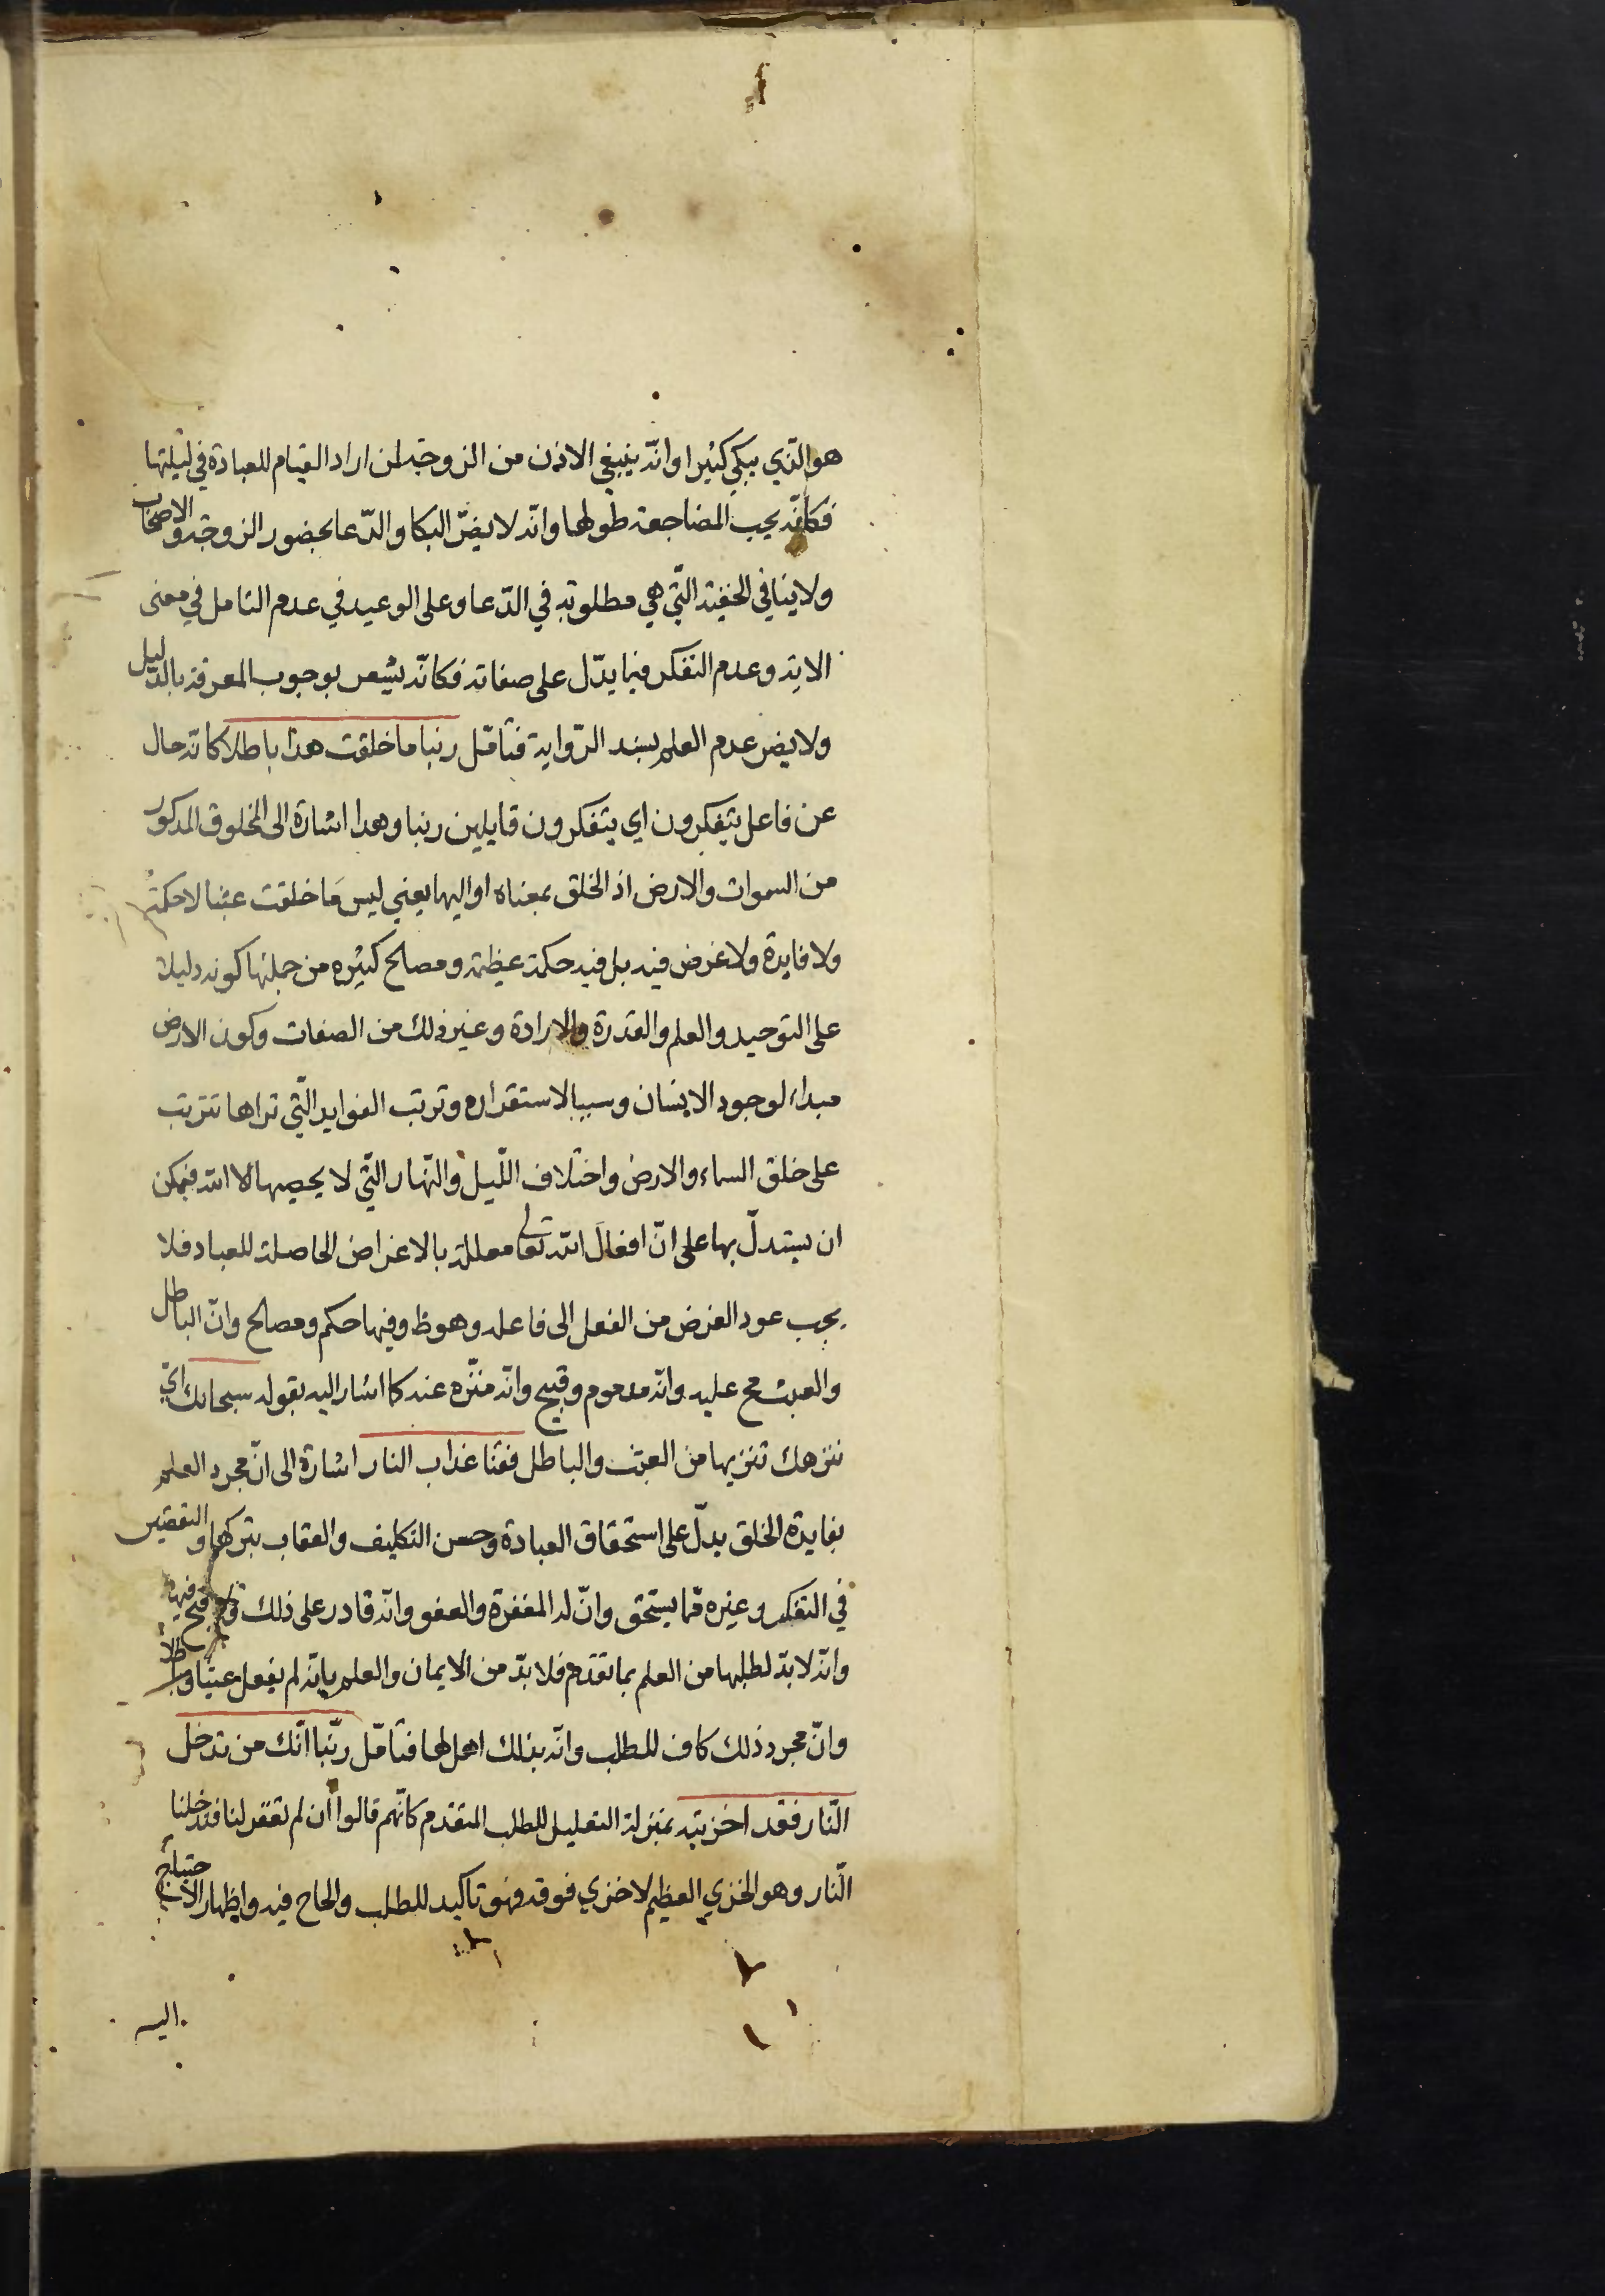 هو الذي يبكي كثيرا وانّه ينبغي الاذن من الزوجة لمن اراد القيام للعبادة في ليلتها
فكانّه يجب المضاجعة طولها وانّه لا يضرّ البكا والدّعا بحضور الزوجة والاصحاب
ولا ينافي الخفية الّتي هي مطلوبة في الدّعا وعلى الوعيد في عدم التامل في معنى
الاية وعدم التفكر فيما يدّل على صفاته فكانّه يشعر بوجوب المعرفة بالدّليل
ولا يضر عدم العلم بسند الرّواية فتامّل ربنا ما خلقت هذا باطلا كانّه حال
عن فاعل يتفكرون اي يتفكرون قايلين ربنا وهذا اشارة الى المخلوق المذكور
من السموات والارض اذ الخلق بمعناه او اليها يعني ليس مَا خلقت عبثا لا حكمة
ولا فايدة ولا غرض فيه بل فيه حكمة عظيمة ومصالح كثيره من جملتها كونه دليلا
على التوحيد والعلم والقدرة والارادة وغير ذلك من الصفات وكون الارض
مبداء لوجود الانسان وسببا لاستقراره وترتب الفوايد الّتي تراها تترتب
على خلق السماء والارض واختلاف اللّيل والنّهار الّتي لا يحصيها الا الله فيمكن
ان يستدلّ بها على انّ افعالَ الله تعالى معللة بالاغراض الحاصلة للعباد فلا
يجب عود الغرض من الفعل الى فاعله وهو ظ وفيها حكم ومصالح وانّ الباطل
والعبث مح عليه وانّه مذموم وقبيح وانّه منزّه عنه كما اشار اليه بقوله سبحانك اي
ننزهك تنزيها من العبث والباطل فقنا عذاب النار اشارة الى انّ مجرد العلم
بفايدة الخلق يدلّ على استحقاق العبادة وحسن التكليف والعقاب بتركها والتقصير
في التفكر وغيره ممّا يستحق وانّ له المغفرة والعفو وانّه قادر على ذلك ولا قبح فيها
وانّه لا بدّ لطلبها من العلم بما تقدم فلا بدّ من الايمان والعلم بانّه لم يفعل عبثا وباطلا
وانّ مجرد ذلك كاف للطلب وانّه بذلك اهل لها فتامّل ربّنا انّك من تدخل
النّار فقد اخزيته بمنزلة التعليل للطلب المتقدم كانّهم قالوا ان لم تغفر لنا فتدخلنا
النّار وهو الخزي العظيم لا خزي فوقه فهو تاكيد للطلب والحاح فيه واظهار الاحتياج
اليه